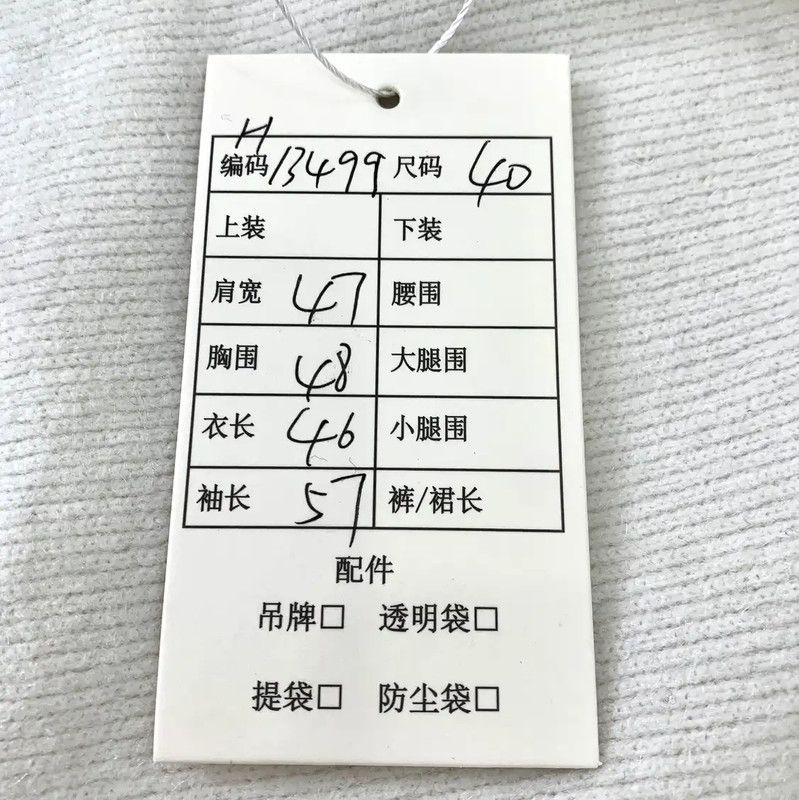 H
编码 13499 尺码 40
上装 下装
肩宽 47 腰围
胸围 48 大腿围
衣长 46 小腿围
袖长 57 裤/裙长
配件
吊牌□ 透明袋□
提袋□ 防尘袋□